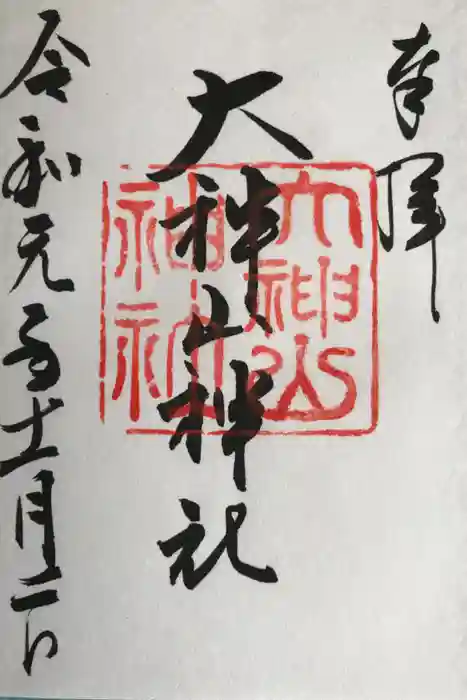 奉拝
大神山神社
大神山
神社
令和元年十一月二日